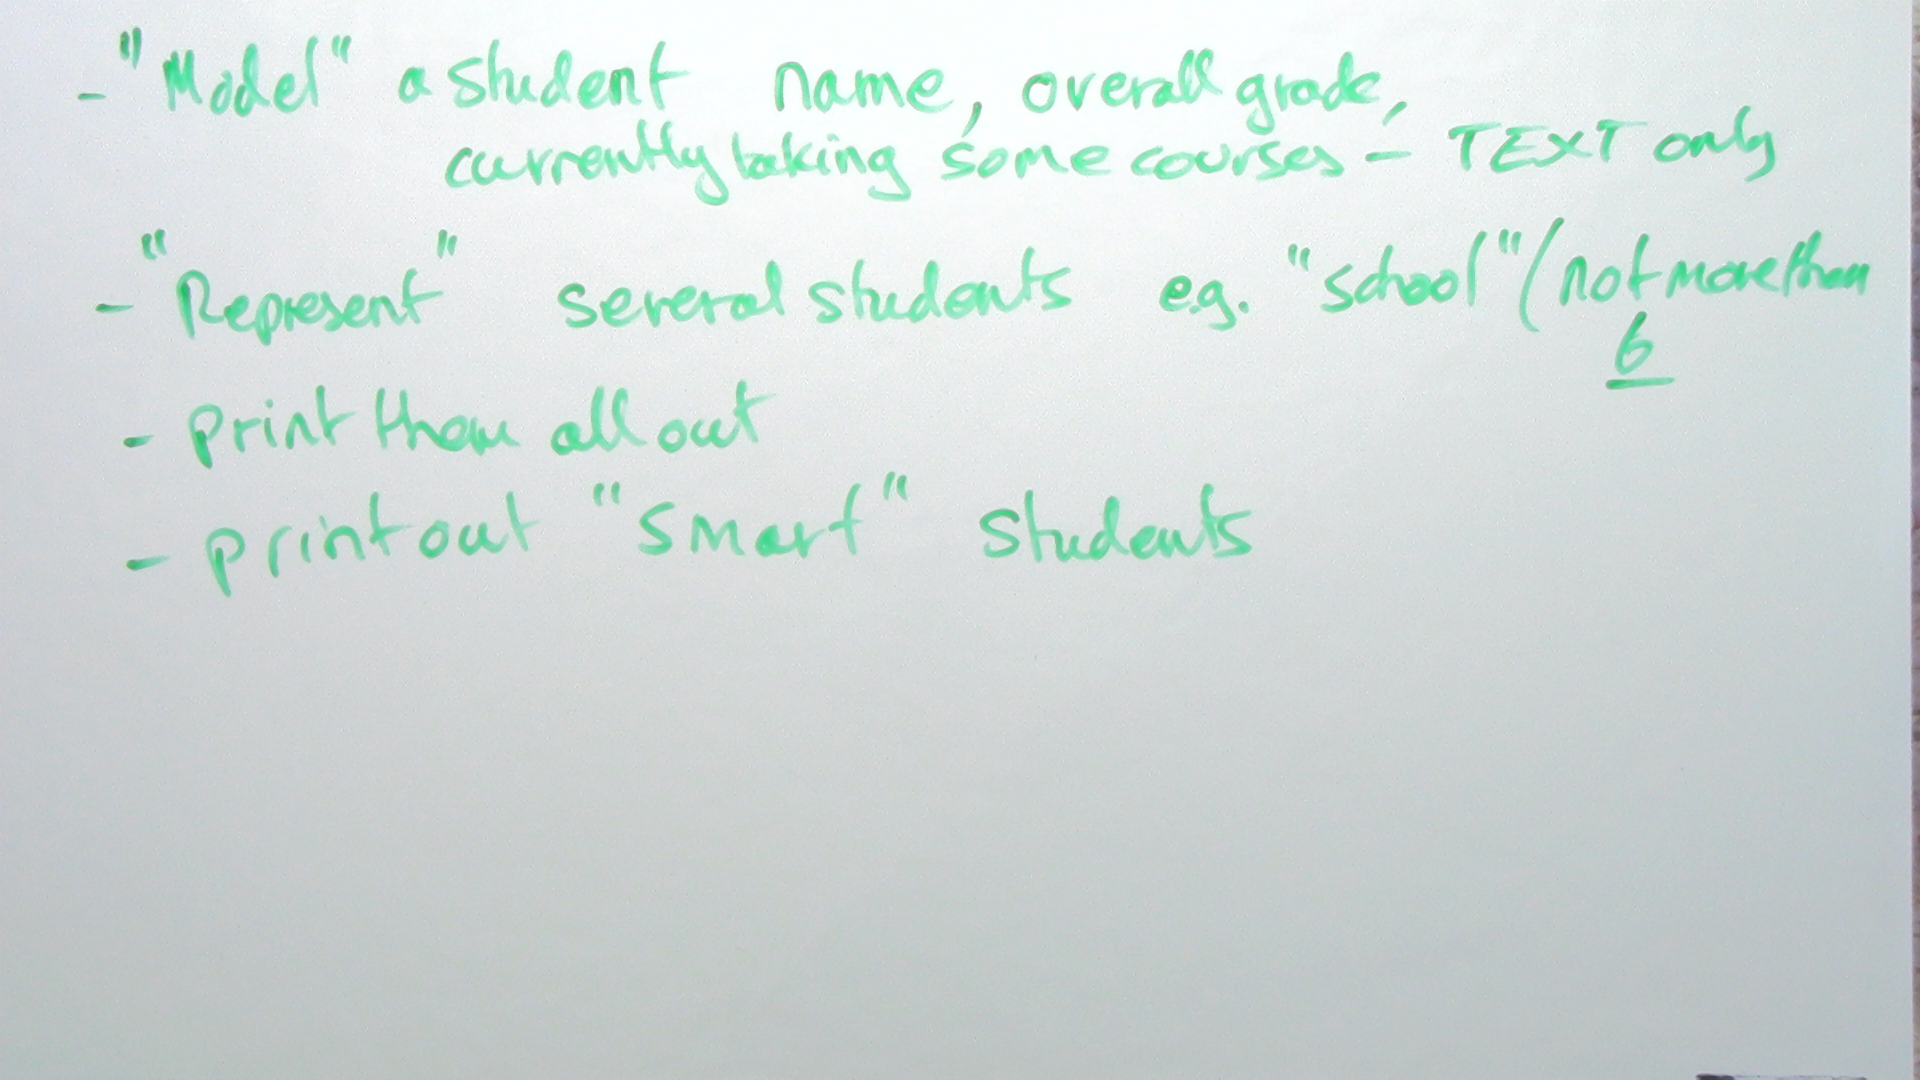 - "Model" a student name, overall grade,
currently taking some courses - TEXT only
- "Represent" several students e.g. "school" (not more than
6
- print them all out
- print out "smart" students